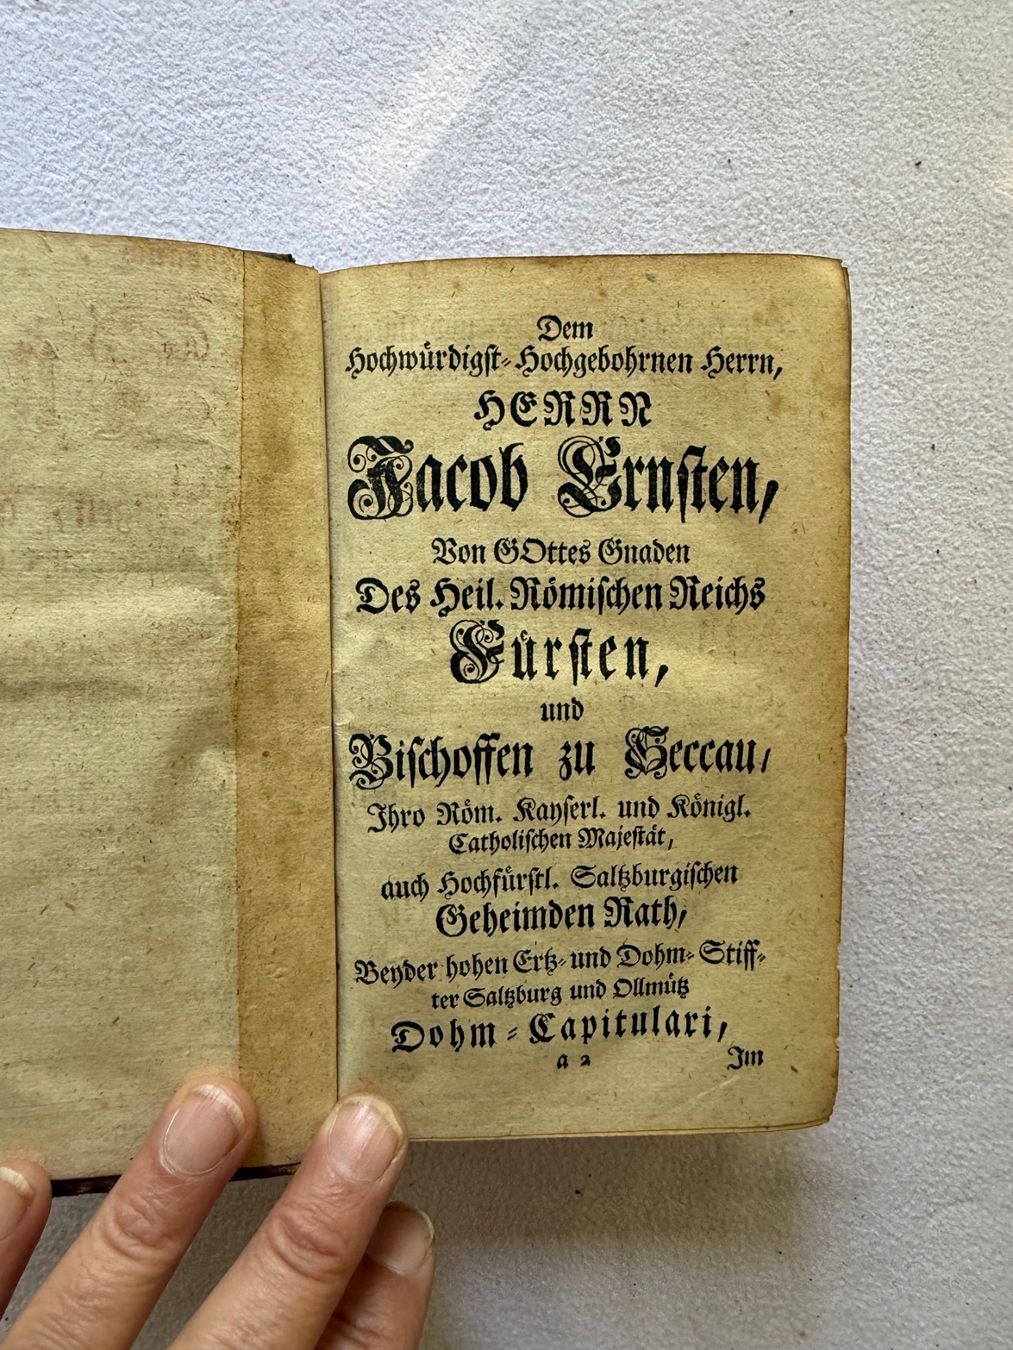 Dem
Hochwürdigst-Hochgebohrnen Herrn,
HERRN
Jacob Ernsten,
Von GOttes Gnaden
Des Heil. Römischen Reichs
Fürsten,
und
Bischoffen zu Seccau,
Ihro Röm. Kayserl. und Königl.
Catholischen Majestät,
auch Hochfürstl. Saltzburgischen
Geheimden Rath,
Beyder hohen Ertz- und Dohm-Stiff-
ter Saltzburg und Ollmütz
Dohm-Capitulari,
a 2
Im